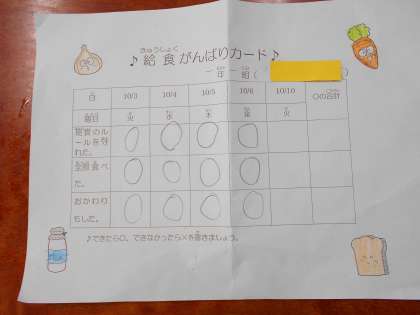 きゅうしょく
♪給食がんばりカード♪
一年一組(
日 10/3 10/4 10/5 10/6 10/10 〇の合計
曜日 火 水 木 金 火
給食のルールを守れた。 〇 〇 〇 〇
全部食べた。 〇 〇 〇 〇
おかわりをした。 〇 〇 〇 〇
♪できたら〇、できなかったら×を書きましょう。